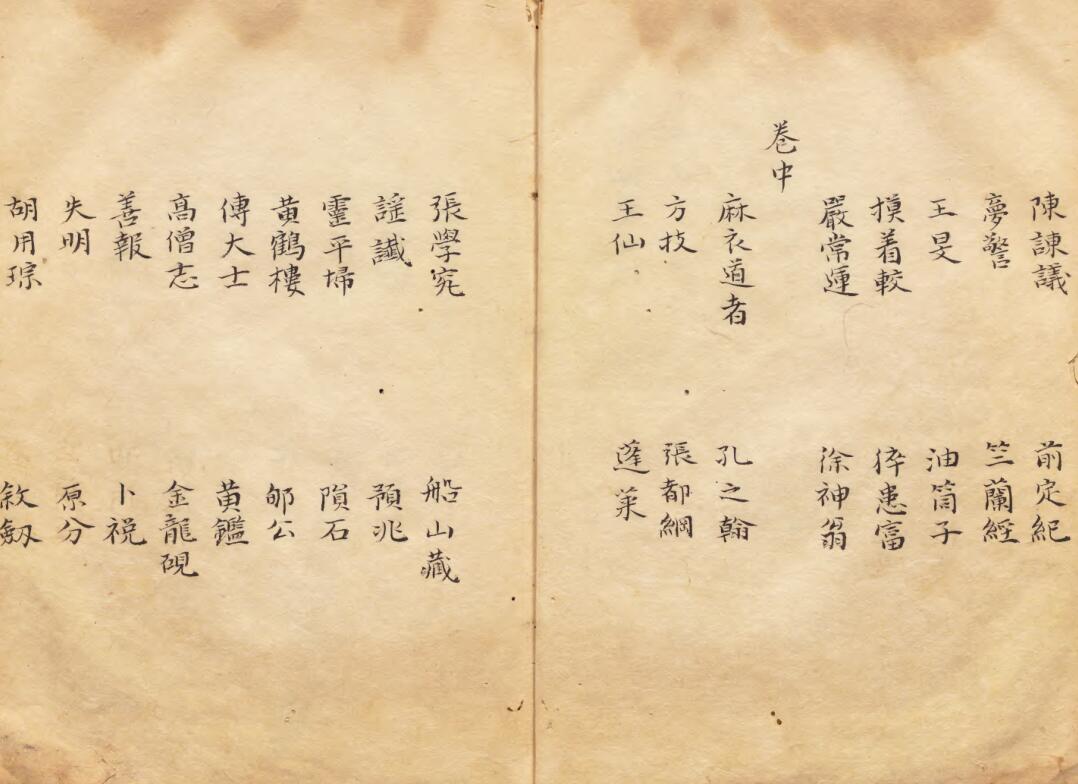 陳諌議 前定紀
夢警 竺蘭經
王旻 油筒子
摸着較 倅患富
嚴常運 徐神翁
卷中
麻衣道者 孔之翰
方技 張都綱
王仙 蓬萊
張學究 船山藏
謡讖 預兆
靈平埽 隕石
黄鶴樓 郇公
傅大士 黄鑑
髙僧志 金龍硯
善報 卜祝
失明 原分
胡用琮 敘劔